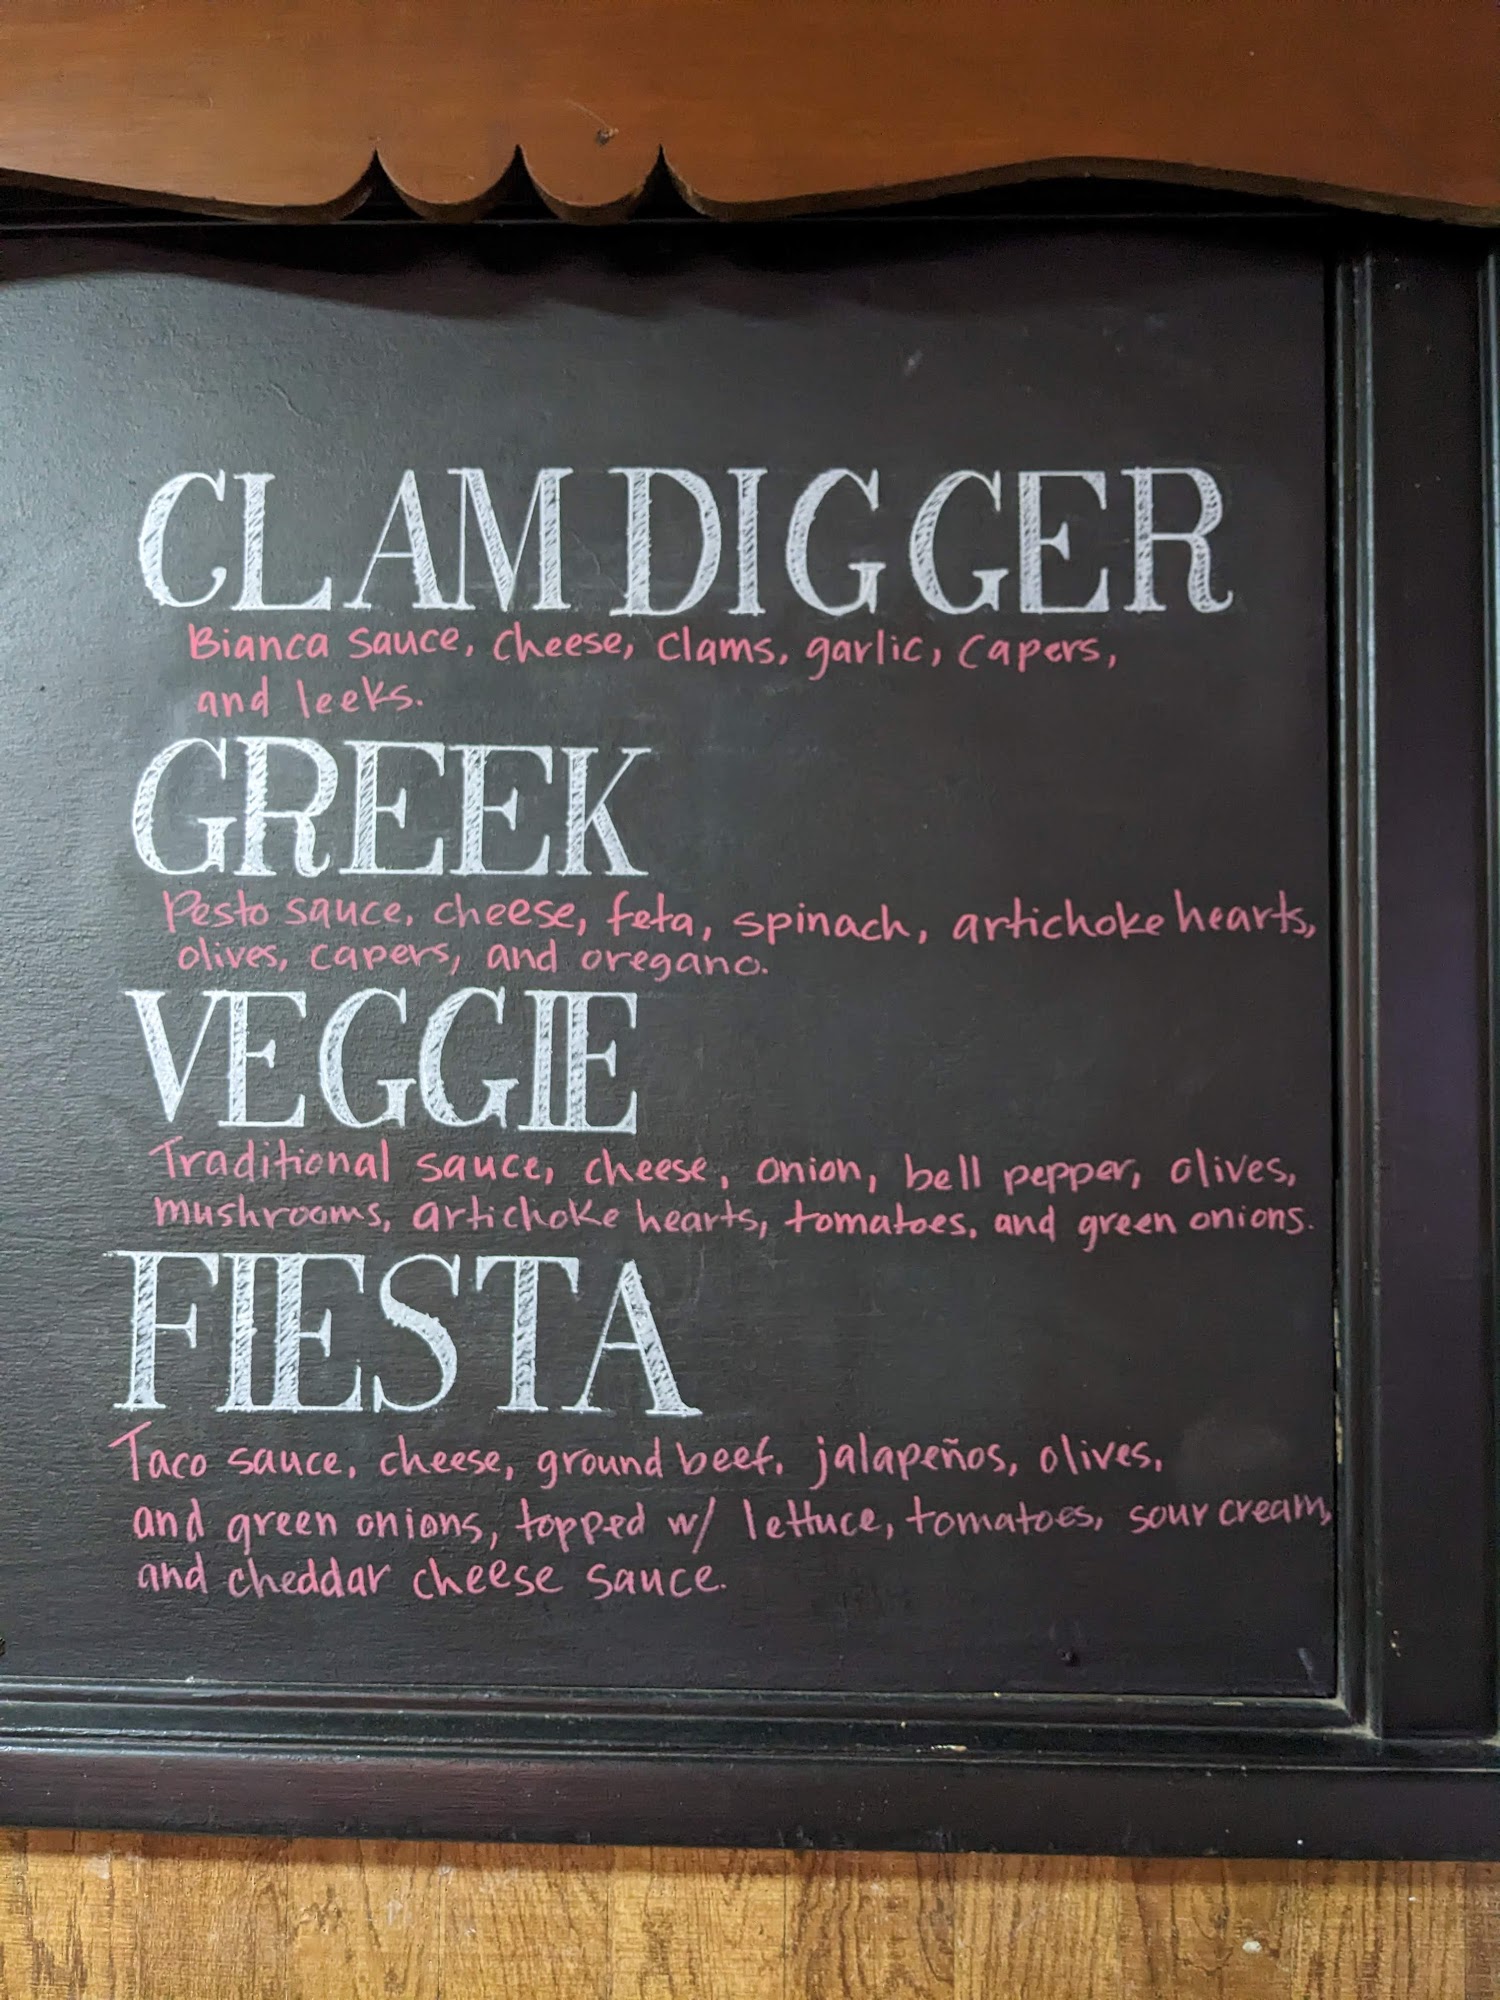 CLAM DIGGER
Bianca sauce, cheese, clams, garlic, capers,
and leeks.
GREEK
Pesto sauce, cheese, feta, spinach, artichoke hearts,
olives, capers, and oregano.
VEGGIE
Traditional sauce, cheese, onion, bell pepper, olives,
mushrooms, artichoke hearts, tomatoes, and green onions.
FIESTA
Taco sauce, cheese, ground beef, jalapeños, olives,
and green onions, topped w/ lettuce, tomatoes, sour cream,
and cheddar cheese sauce.